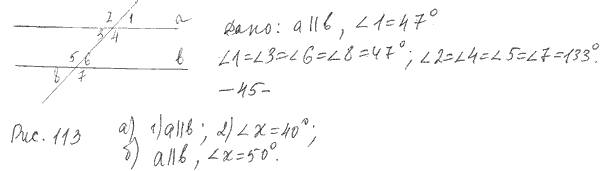 2 1 a
3 4
5 6 b
8 7
Дано: a∥b, ∠1=47°
∠1=∠3=∠6=∠8=47°; ∠2=∠4=∠5=∠7=133°.
-45-
Рис. 113 а) 1) a∥b; 2) ∠x=40°;
б) a∥b, ∠x=50°.